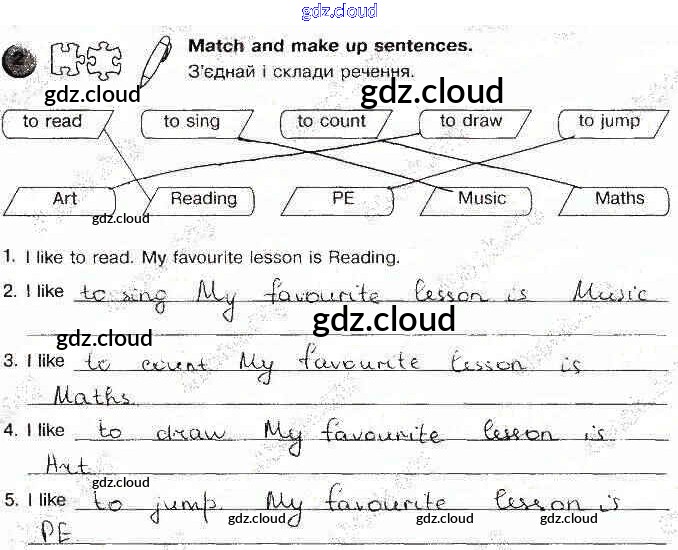 gdz.cloud
2 Match and make up sentences.
З'єднай і склади речення.
gdz.cloud gdz.cloud
to read to sing to count to draw to jump
Art Reading PE Music Maths
gdz.cloud
1. I like to read. My favourite lesson is Reading.
2. I like to sing My favourite lesson is Music
gdz.cloud
gdz.cloud
3. I like to count My favourite lesson is
Maths
4. I like to draw My favourite lesson is
Art
gdz.cloud
5. I like to jump. My favourite lesson is
PE
gdz.cloud gdz.cloud gdz.cloud